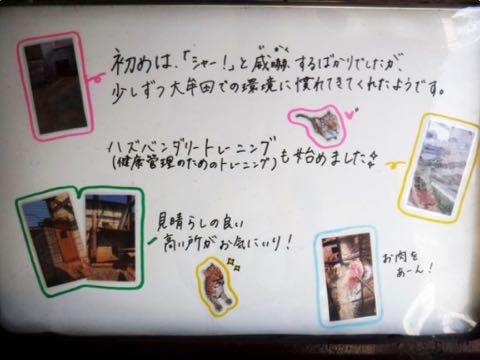 初めは、「シャー!」と威嚇するばかりでしたが、
少しずつ大牟田での環境に慣れてきてくれたようです。
ハズバンダリートレーニング
(健康管理のためのトレーニング)も始めました☆
見晴らしの良い
高い所がお気にいり!
お肉を
あーん!